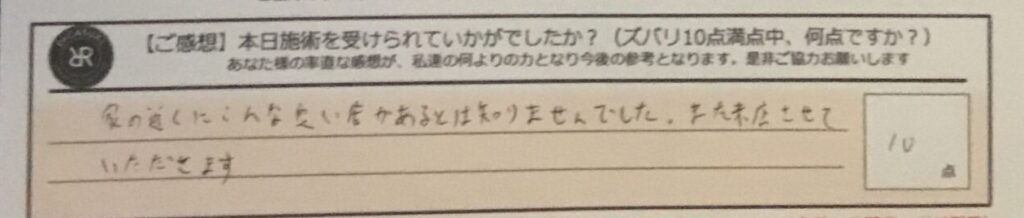 【ご感想】本日施術を受けられていかがでしたか？（ズバリ10点満点中、何点ですか？）
あなた様の率直な感想が、私達の何よりの力となり今後の参考となります。是非ご協力お願いします
家の近くにこんな良い店があるとは知りませんでした。また来店させて
いただきます
10
点